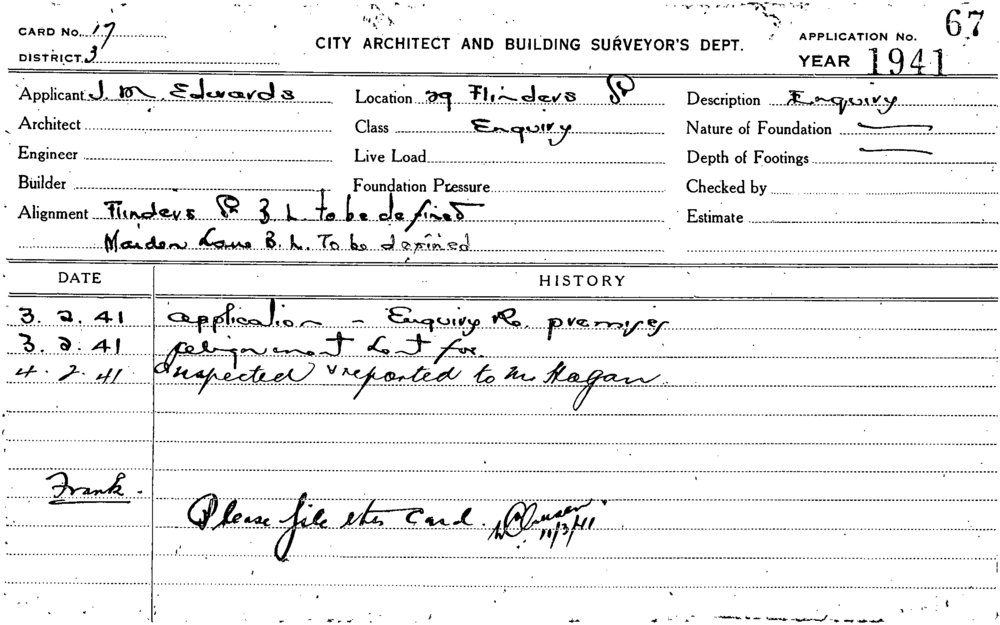 CARD No. 17
DISTRICT 3
CITY ARCHITECT AND BUILDING SURVEYOR'S DEPT.
APPLICATION No. 67
YEAR 1941
Applicant J. M. Edwards
Location 29 Flinders St
Description Enquiry
Architect
Class Enquiry
Nature of Foundation
Engineer
Live Load
Depth of Footings
Builder
Foundation Pressure
Checked by
Alignment Flinders St B. L. to be defined
Estimate
Maiden Lane B. L. To be defined
DATE HISTORY
3. 2. 41 application - Enquiry Re. premises
3. 2. 41 for
4. 2. 41 Inspected & reported to Mr Hogan
Frank.
Please file this card.
11/3/41